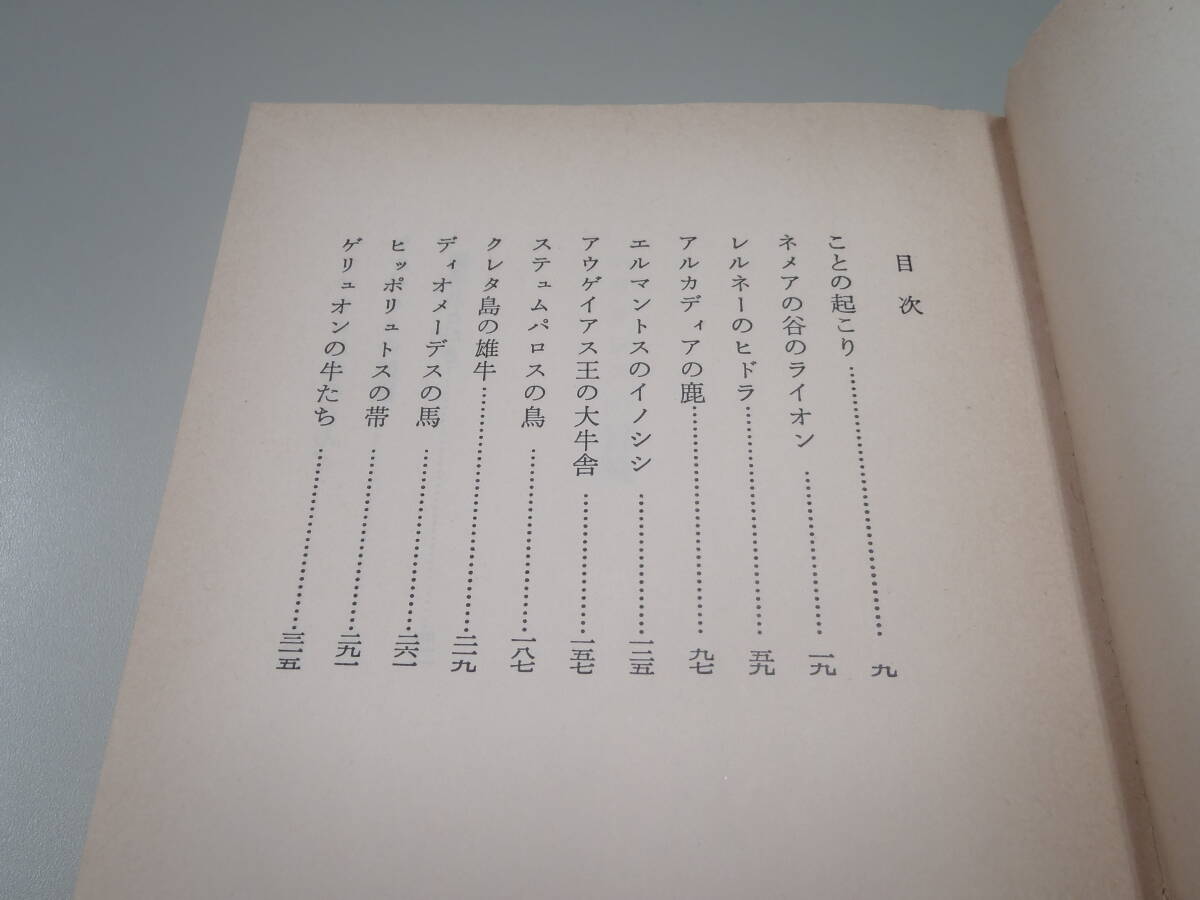 目次
ことの起こり……………………九
ネメアの谷のライオン……………一九
レルネーのヒドラ…………………五九
アルカディアの鹿…………………九七
エルマントスのイノシシ…………一二五
アウゲイアス王の大牛舎…………一五七
ステュムパロスの鳥………………一八七
クレタ島の雄牛……………………二一九
ディオメーデスの馬………………二六一
ヒッポリュトスの帯………………二九一
ゲリュオンの牛たち………………三一五